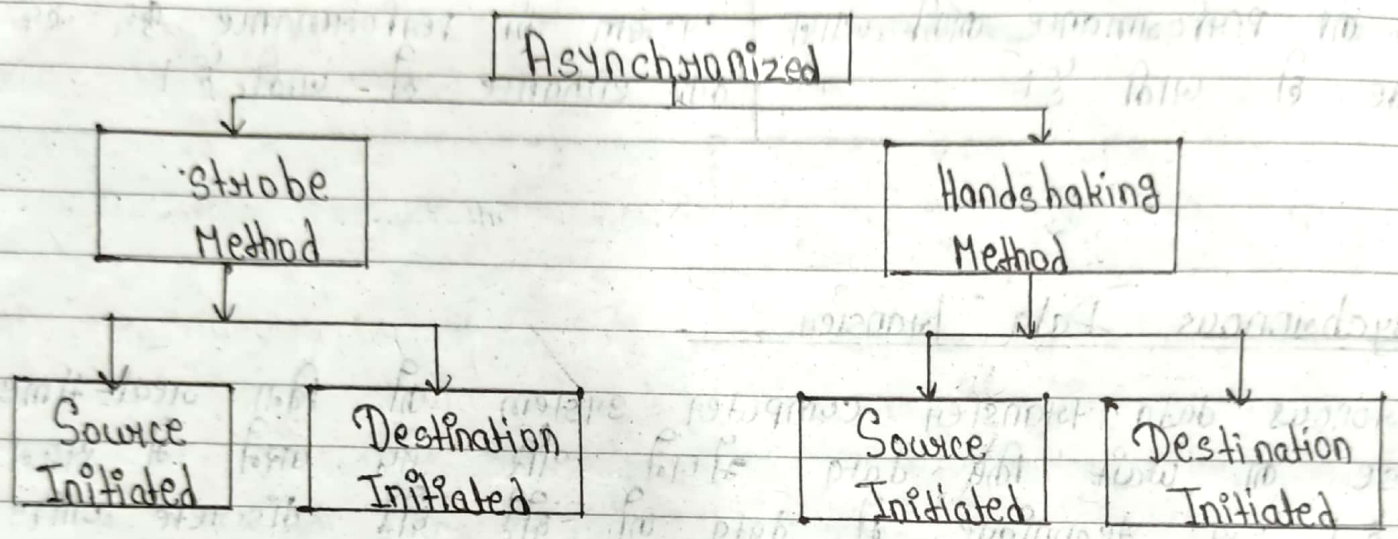 Asynchronized
Strobe
Method
Handshaking
Method
Source
Initiated
Destination
Initiated
Source
Initiated
Destination
Initiated